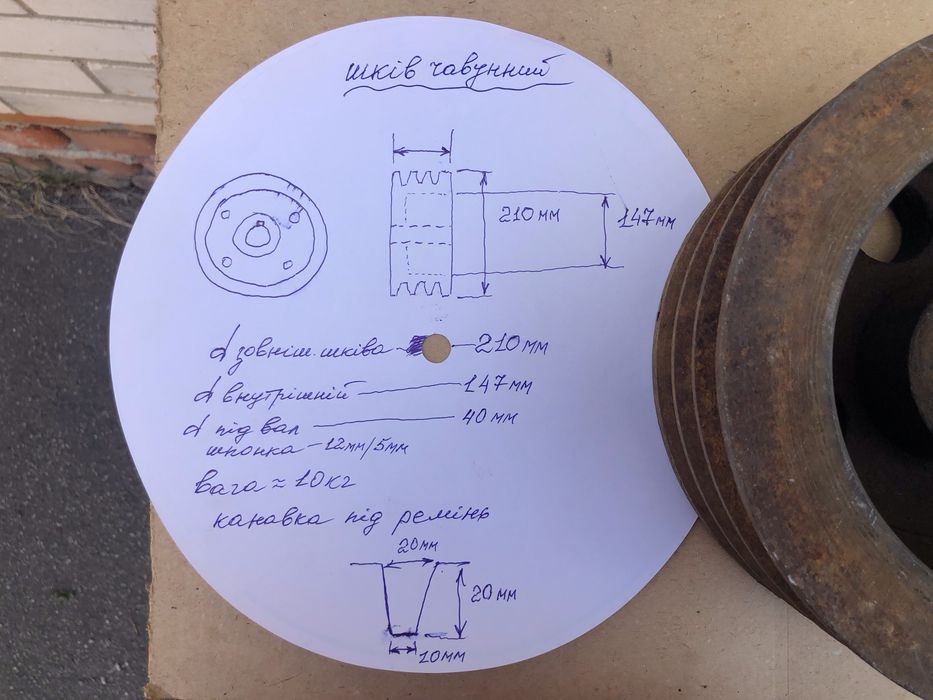 шків чавунний
210 мм
147 мм
d зовніш. шківа — 210 мм
d внутрішній — 147 мм
d під вал — 40 мм
шпонка — 12мм/5мм
вага ≈ 10 кг
канавка під ремінь
20мм
20 мм
10мм